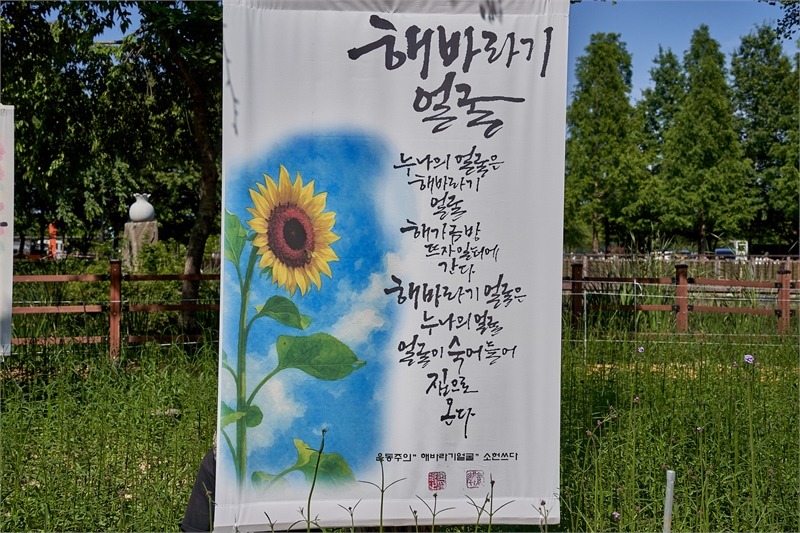 해바라기
얼굴
누나의 얼굴은
해바라기
얼굴
해가 금방
뜨자 일터에
간다
해바라기 얼굴은
누나의 얼굴
얼굴이 숙어 들어
집으로
온다
윤동주의" 해바라기얼굴" 소헌쓰다